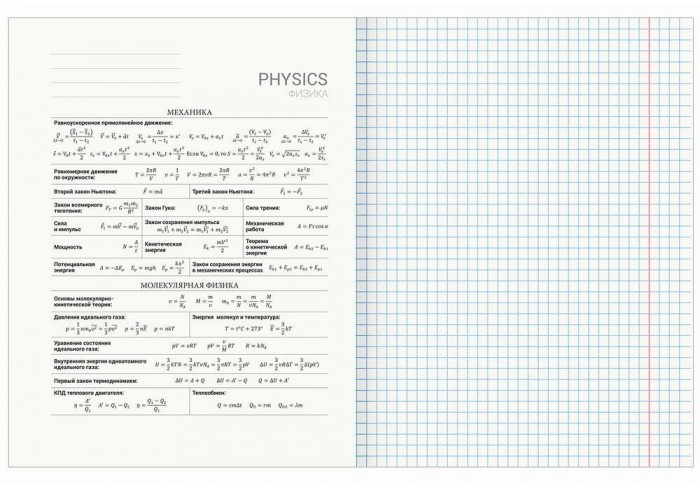 PHYSICS
ФИЗИКА
МЕХАНИКА
Равноускоренное прямолинейное движение:
Равномерное движение по окружности: T = 2πR/V ν = 1/T V = 2πνR = 2πR/T a = v²/R = 4π²R v² = 4π²R/T²
Второй закон Ньютона: F⃗ = ma⃗ Третий закон Ньютона: F⃗₁ = −F⃗₂
Закон всемирного тяготения: F_T = G m₁m₂/R² Закон Гука: (F_y)ₓ = −kx Сила трения: F_тр = μN
Сила и импульс Закон сохранения импульса m₁V⃗₁ + m₂V⃗₂ = m₁V⃗₁ + m₂V⃗₂ Механическая работа A = Fs cos α
Мощность N = A/t Кинетическая энергия E_k = mV²/2 Теорема о кинетической энергии A = E_k2 − E_k1
Потенциальная энергия A = −ΔE_p E_p = mgh E_p = kx²/2 Закон сохранения энергии в механических процессах E_k1 + E_p1 = E_k2 + E_p2
МОЛЕКУЛЯРНАЯ ФИЗИКА
Основы молекулярно-кинетической теории: ν = N/N_A M = m/ν m₀ = m/N = m/νN_A = M/N_A
Давление идеального газа: p = 1/3 nm₀v² = 1/3 ρv² p = 2/3 nE̅ p = nkT Энергия молекул и температура: T = t°C + 273° E̅ = 3/2 kT
Уравнение состояния идеального газа: pV = νRT pV = m/M RT R = kN_A
Внутренняя энергия одноатомного идеального газа: U = 3/2 kTN = 3/2 kTνN_A = 3/2 νRT = 3/2 pV ΔU = 3/2 νRΔT = 3/2 Δ(pV)
Первый закон термодинамики: ΔU = A + Q ΔU = A' − Q Q = ΔU + A'
КПД теплового двигателя: η = A'/Q₁ A' = Q₁ − Q₂ η = Q₁ − Q₂/Q₁ Теплообмен: Q = cmΔt Q_П = rm Q_ПЛ = λm